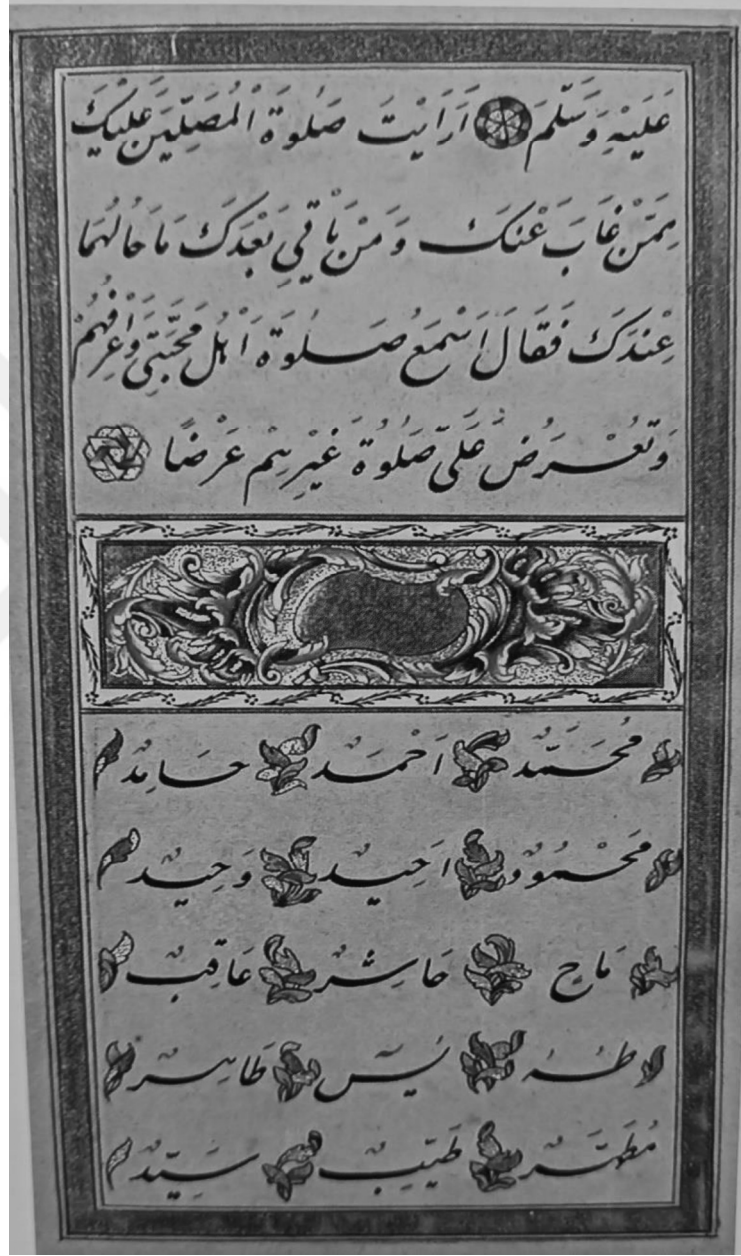 عَلَيْهِ وَسَلَّمَ اَرَاَيْتَ صَلٰوةَ الْمُصَلِّينَ عَلَيْكَ
مِمَّنْ غَابَ عَنْكَ وَمَنْ يَاْتِي بَعْدَكَ مَا حَالُهُمَا
عِنْدَكَ فَقَالَ اَسْمَعُ صَلٰوةَ اَهْلِ مَحَبَّتِي وَاَعْرِفُهُمْ
وَتُعْرَضُ عَلَيَّ صَلٰوةُ غَيْرِهِمْ عَرْضًا
مُحَمَّدٌ اَحْمَدٌ حَامِدٌ
مَحْمُودٌ اَحِيدٌ وَحِيدٌ
مَاحٍ حَاشِرٌ عَاقِبٌ
طٰهٰ يٰسٓ طَاهِرٌ
مُطَهَّرٌ طَيِّبٌ سَيِّدٌ